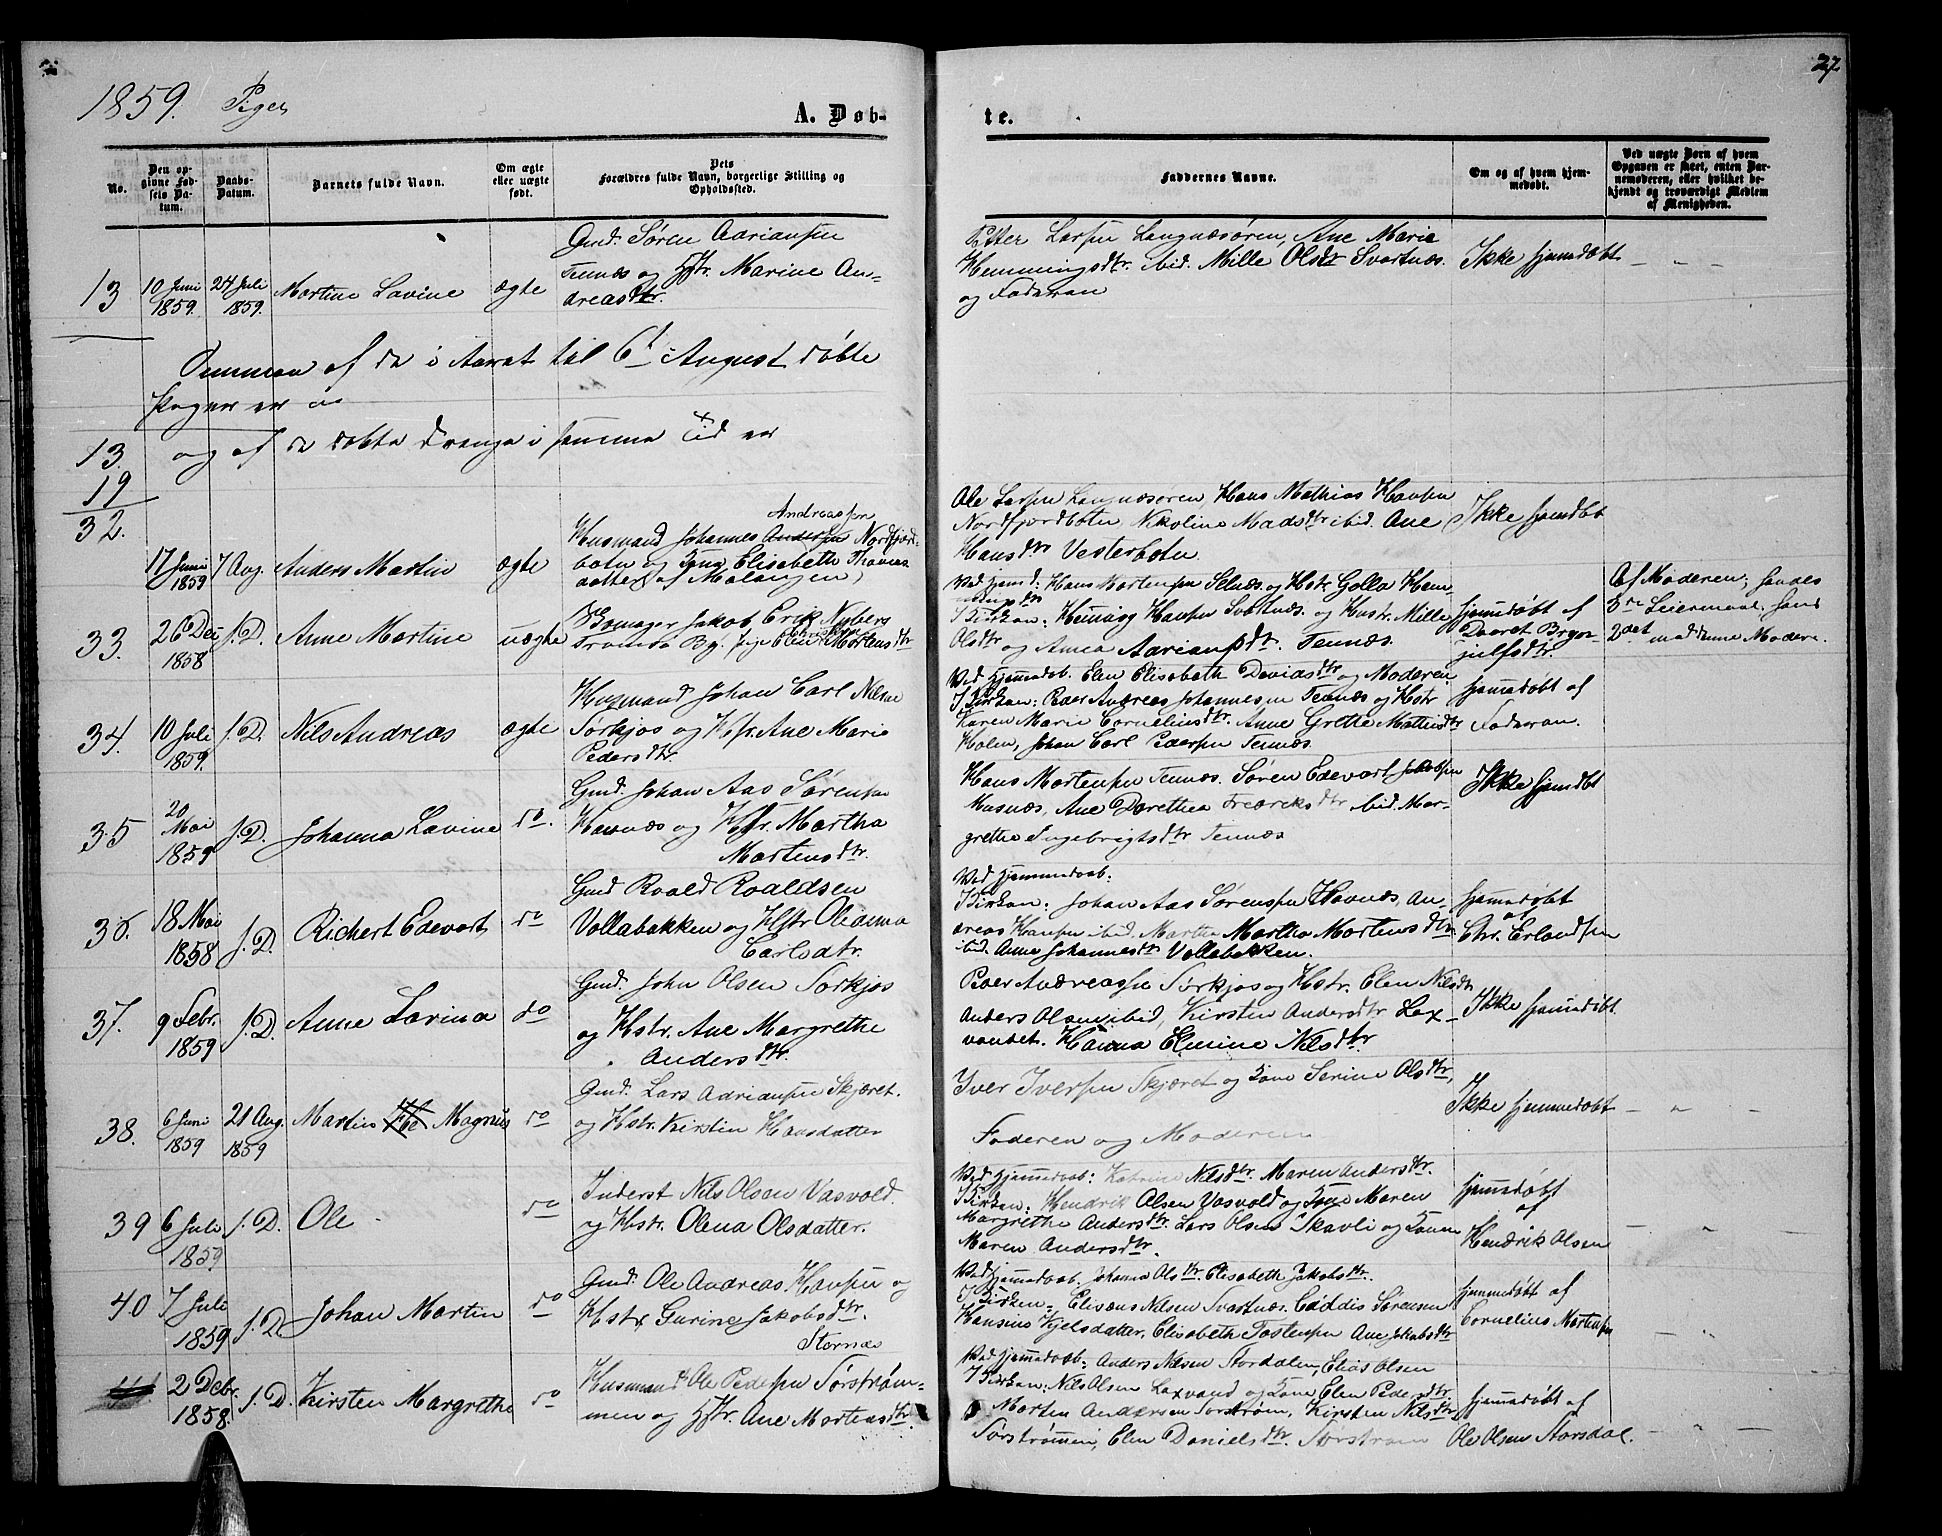 1859. Piger
A. Døb-
te.
27
No.
Den opgivne Fødsels Datum.
Daabs-Datum.
Barnets fulde Navn.
Om ægte eller uægte født.
Dets Forældres fulde Navn, borgerlige Stilling og Opholdssted.
Faddernes Navne.
Om og af hvem hjemmedøbt.
Ved uægte Børn af hvem Opgaven er skeet, enten Barnemoderen, eller hvilket bekjendt og troværdigt Medlem af Menigheden.
13
10 Juni 1859.
24 Juli 1859.
Martine Lovine
ægte
Gmd. Søren Adriansen
Tennæs og Hstr. Marine An-
dreasdtr.
Petter Larsen Langnæsøren, Ane Marie
Hemmingsdtr. ibid. Mille Olsdtr Svartnæs.
og Faderen
Ikke hjemdøbt
Summen af de i Aaret til 6t August døbte
Piger er
13.
og af de døbte Drenge i samme Tid er
19
32.
17 Juni 1859
7 Aug.
Anders Martin
ægte
Andreassen
Husmand Johannes Andersen Nordfjord-
botn og Kone Elisabeth Thomas
datter (af Malangen)
Ole Larsen Langnæsøren Hans Mathias Hansen
Nordfjordbotn, Nikoline Madsdtr ibid. Ane
Hansdtr Vesterbotn
Ikke hjemdøbt
33.
26 Dec 1858
s. D.
Anne Martine
uægte
Skomager Jakob Erik Nybers
Tromsø By. Pige Oline Mortensdtr
Ved Hjemd: Hans Mortensen Selnæs og Hstr. Golla Hem-
mingsdtr
I Kirken: Heming Hansen Svartnæs og Hustr. Mille
Olsdtr og Anna Adriansdtr. Tennæs.
hjemmedøbt af
Daaret Bryn-
julfsdtr.
Af Moderen; hendes
3die Leiermaal, hans
2det med denne Moder.
34.
10 Juli 1859.
s. D.
Nils Andreas
ægte
Husmand Johan Carl Nilsen
Sørkjos og Hstr. Ane Marie
Pedersdtr.
Ved Hjemdaab. Elen Elisabeth Davidsdtr. og Moderen
I Kirken: Peder Andreas Johannesen Tennæs og Hstr
Karen Marie Corneliusdtr. Anne Grette Mathisdtr
Holm, Johan Carl Pedersen Tennæs.
hjemmedøbt af
Faderen.
35
20 Mai 1859
s. D.
Johanna Lovine
do.
Gmd. Johan Aas Sørensen
Havnæs og Hstr. Martha
Mortensdtr.
Hans Mortensen Tennæs. Søren Edevart Jakobsen
Musnæs, Ane Dorethea Fredriksdtr ibid. Mar-
grethe Ingebrigtsdtr Tennæs
Ikke hjemdøbt
36.
18 Mai 1858
s. D.
Richert Edevart
do
Gmd Roald Roaldsen
Vollabakken og Hstr Oleanna
Carlsdtr.
Ved Hjemmedaab:
I Kirken: Johan Aas Sørensen Havnæs, An-
dreas Hansen ibid. Martha Martha Mortensdtr.
ibid. Anne Johannesdtr Vollabakken.
hjemmedøbt
af
Chr. Erlandsen
37.
9 Febr. 1859
s. D.
Anne Lovina
do
Gmd. John Olsen Sørkjos
og Hstr. Ane Margrethe
Andersdtr.
Peder Andreassen Sørkjos og Hstr. Elen Nilsdtr
Anders Olsen ibid, Kirsten Andersdtr Lax-
vandet. Hanna Elmine Nilsdtr
Ikke hjemmedøbt
38.
6 Juni 1859
21 Aug. 1859
Martin Magnus
do
Gmd. Lars Adriansen Skjæret.
og Hstr. Kirstin Hansdatter
Iver Iversen Skjæret og Kone Serine Olsdtr,
Faderen og Moderen
Ikke hjemmedøbt
39
6 Juli 1859
s. D.
Ole
do
Inderst Nils Olsen Vasvold
og Hstr. Olena Olsdatter.
Ved Hjemmedaab: Katrine Nilsdtr. Maren Andersdtr.
I Kirken: Hendrik Olsen Vasvold og Kone Maren
Margrethe Andersdtr. Lars Olsen Skavli og Konen
Maren Andersdtr.
hjemmedøbt
af
Hendrik Olsen
40
7 Juli 1859
s. D.
Johan Martin
do
Gmd. Ole Andreas Hansen og
Hstr. Gurine Jakobsdtr.
Stornæs
Ved Hjemmedaab. Johanna Olsdtr. Elisabeth Jakobsdtr.
I Kirken: Elisæus Nilsen Svartnæs. Eddis Sørensen
Hansine Kjelsdatter, Elisabeth Tostensen Ane Jakobsdtr
hjemmedøbt af
Cornelius Mortensen
41
2 Debr. 1858.
s. D.
Kirsten Margrethe
do
Husmand Ole Pedersen Sørstrøm-
men og Hstr. Ane Mortensdtr.
Ved Hjemmedaab: Anders Nilsen Stordalen, Elias Olsen
I Kirken: Nils Olsen Laxvand og Kone Elen Pedersdtr.
Morten Andersen Sørstrøm, Kirsten Nilsdtr
Sørstrømmen, Elen Danielsdtr. Sørstrøm
hjemmedøbt af
Ole Olsen Storsdal.